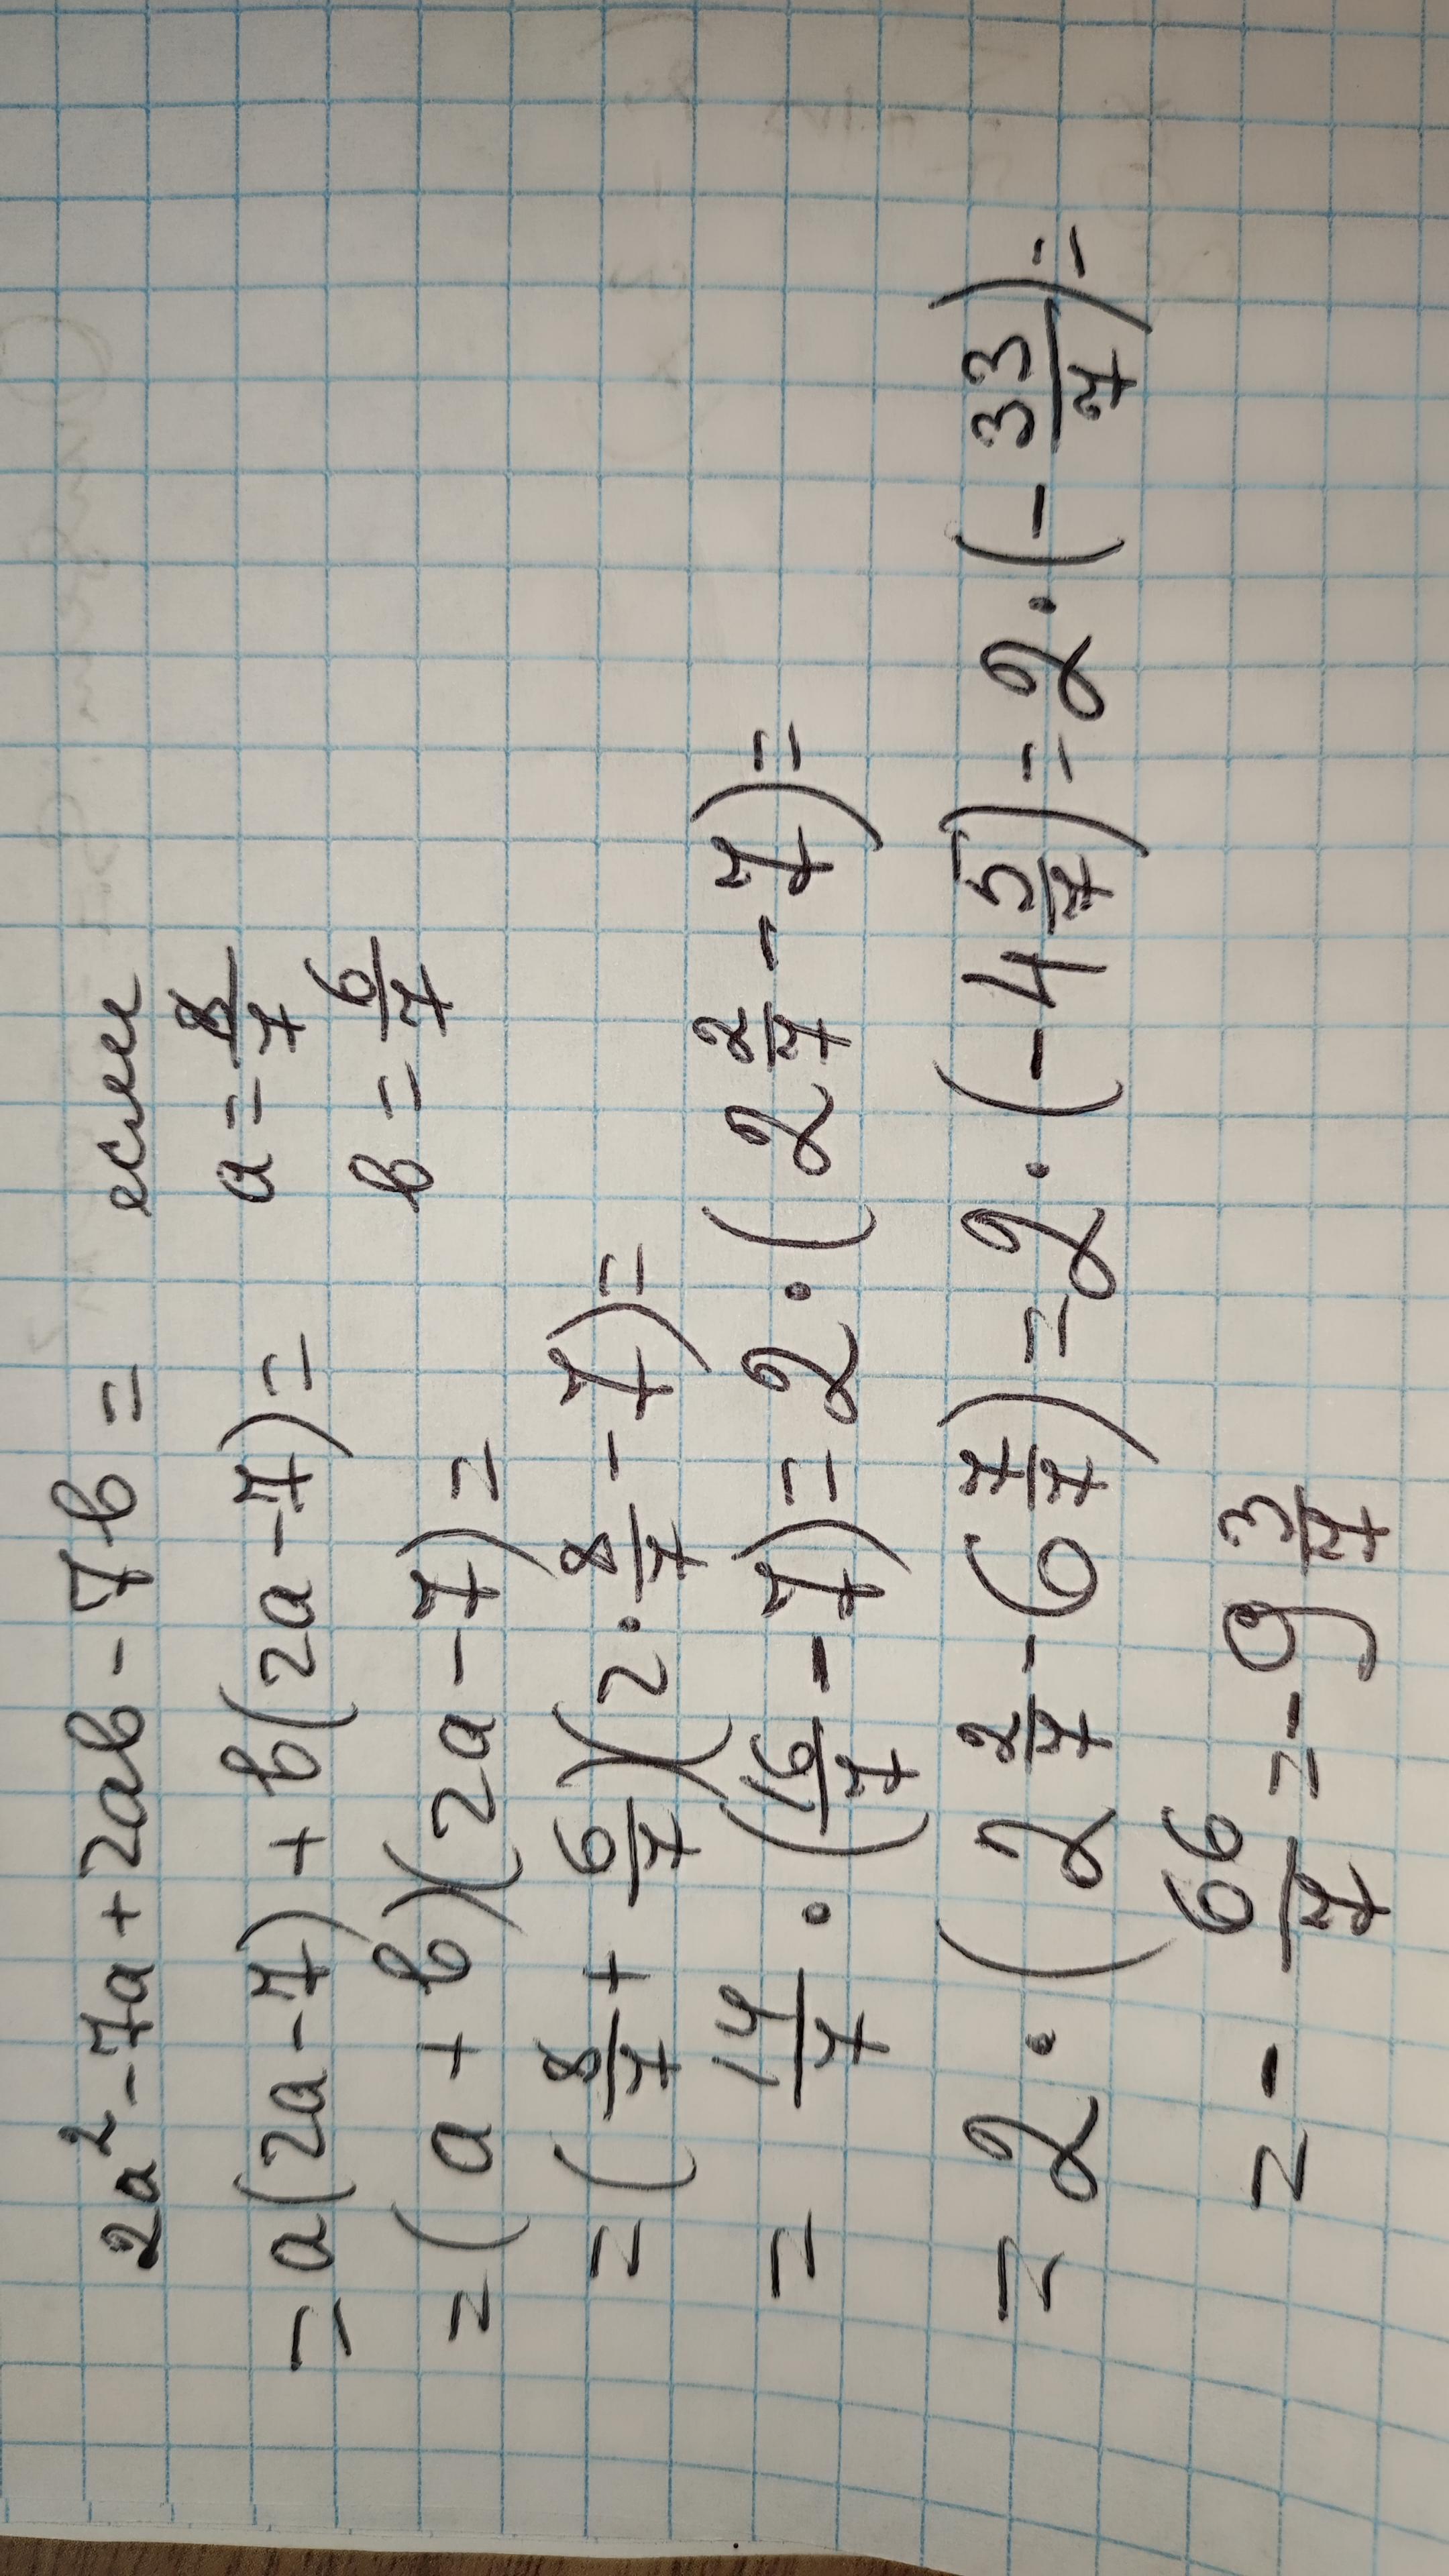 2a² - 7a + 2ab - 7b = если
= a(2a - 7) + b(2a - 7) = a = 8/7
= (a + b)(2a - 7) = b = 6/7
= (8/7 + 6/7)(2 · 8/7 - 7) =
= 14/7 · (16/7 - 7) = 2 · (2 2/7 - 7) =
= 2 · (2 2/7 - 6 7/7) = 2 · (- 4 5/7) = 2 · (- 33/7) =
= - 66/7 = - 9 3/7